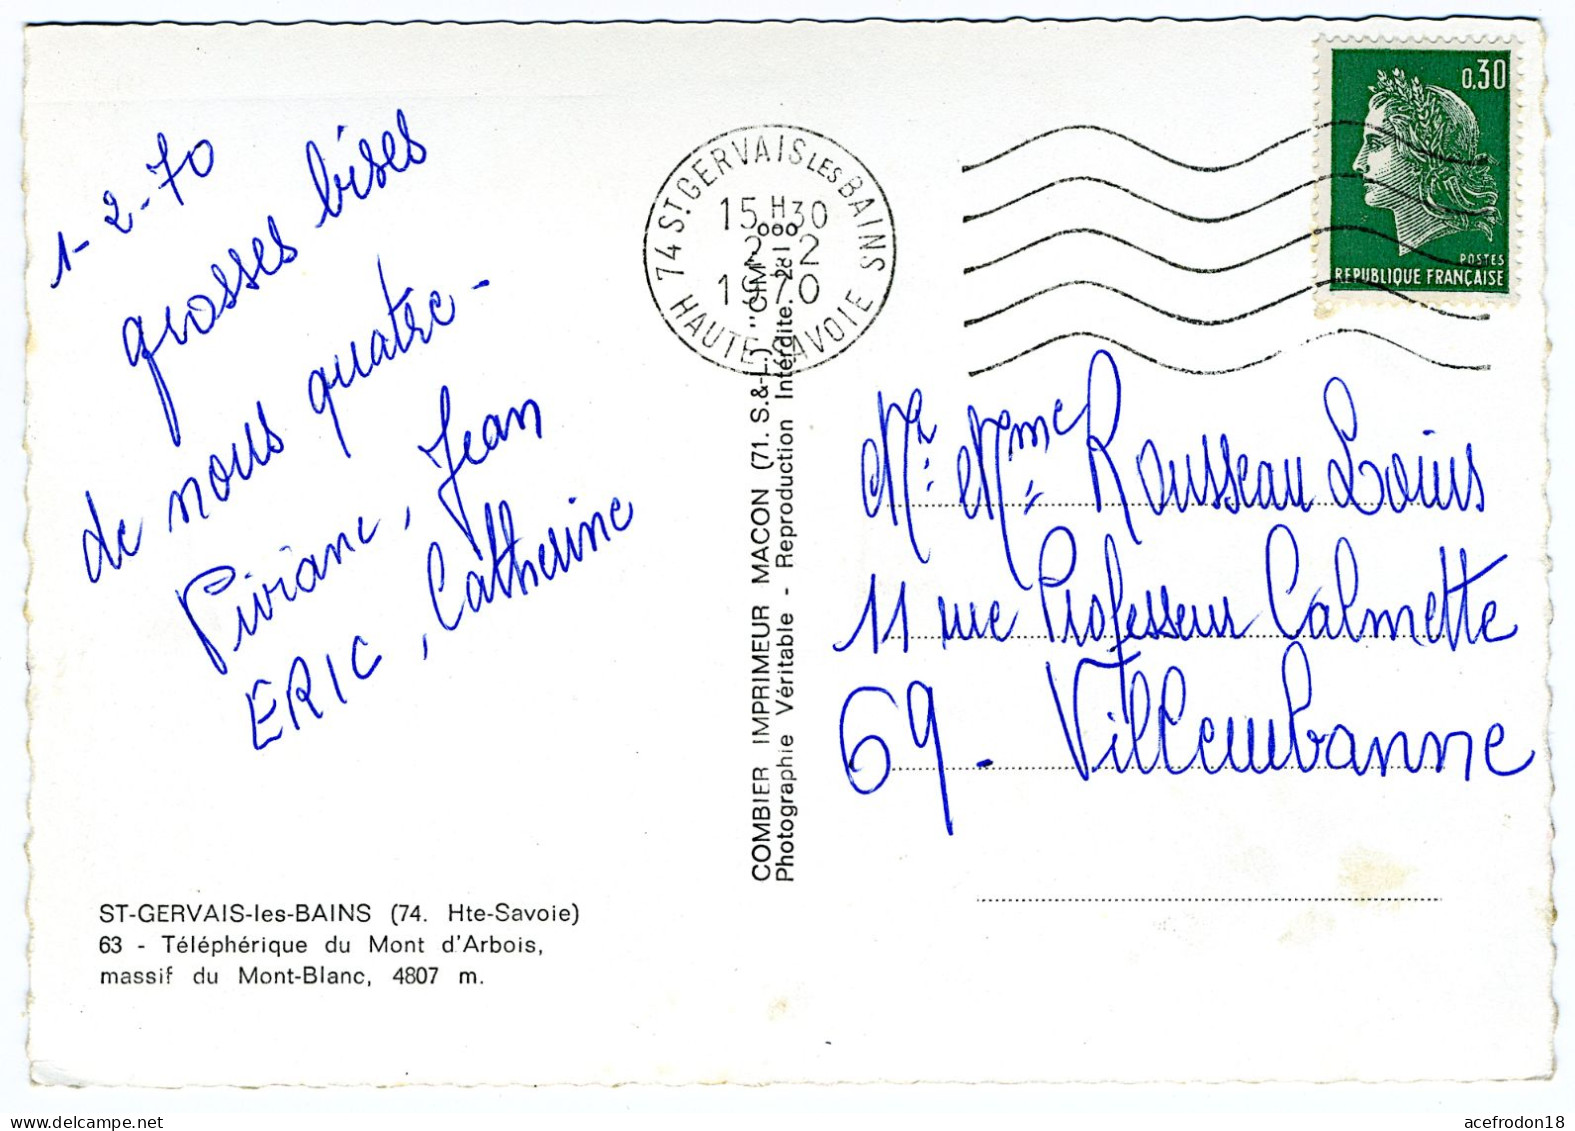 1-2-70
grosses bises
de nous quatre -
Viviane, Jean
ERIC, Catherine
ST-GERVAIS-les-BAINS (74. Hte-Savoie)
63 - Téléphérique du Mont d'Arbois,
massif du Mont-Blanc, 4807 m.
COMBIER IMPRIMEUR MACON (71. S.&-L.) "CIM"
Photographie Véritable - Reproduction Interdite.
74 ST GERVAIS LES BAINS
15 H 30
2-2
1970
HAUTE SAVOIE
0,30
POSTES
REPUBLIQUE FRANÇAISE
Mr. Mme Rousseau Louis
11 rue Professeur Calmette
69 - Villeurbanne
acefrodon18